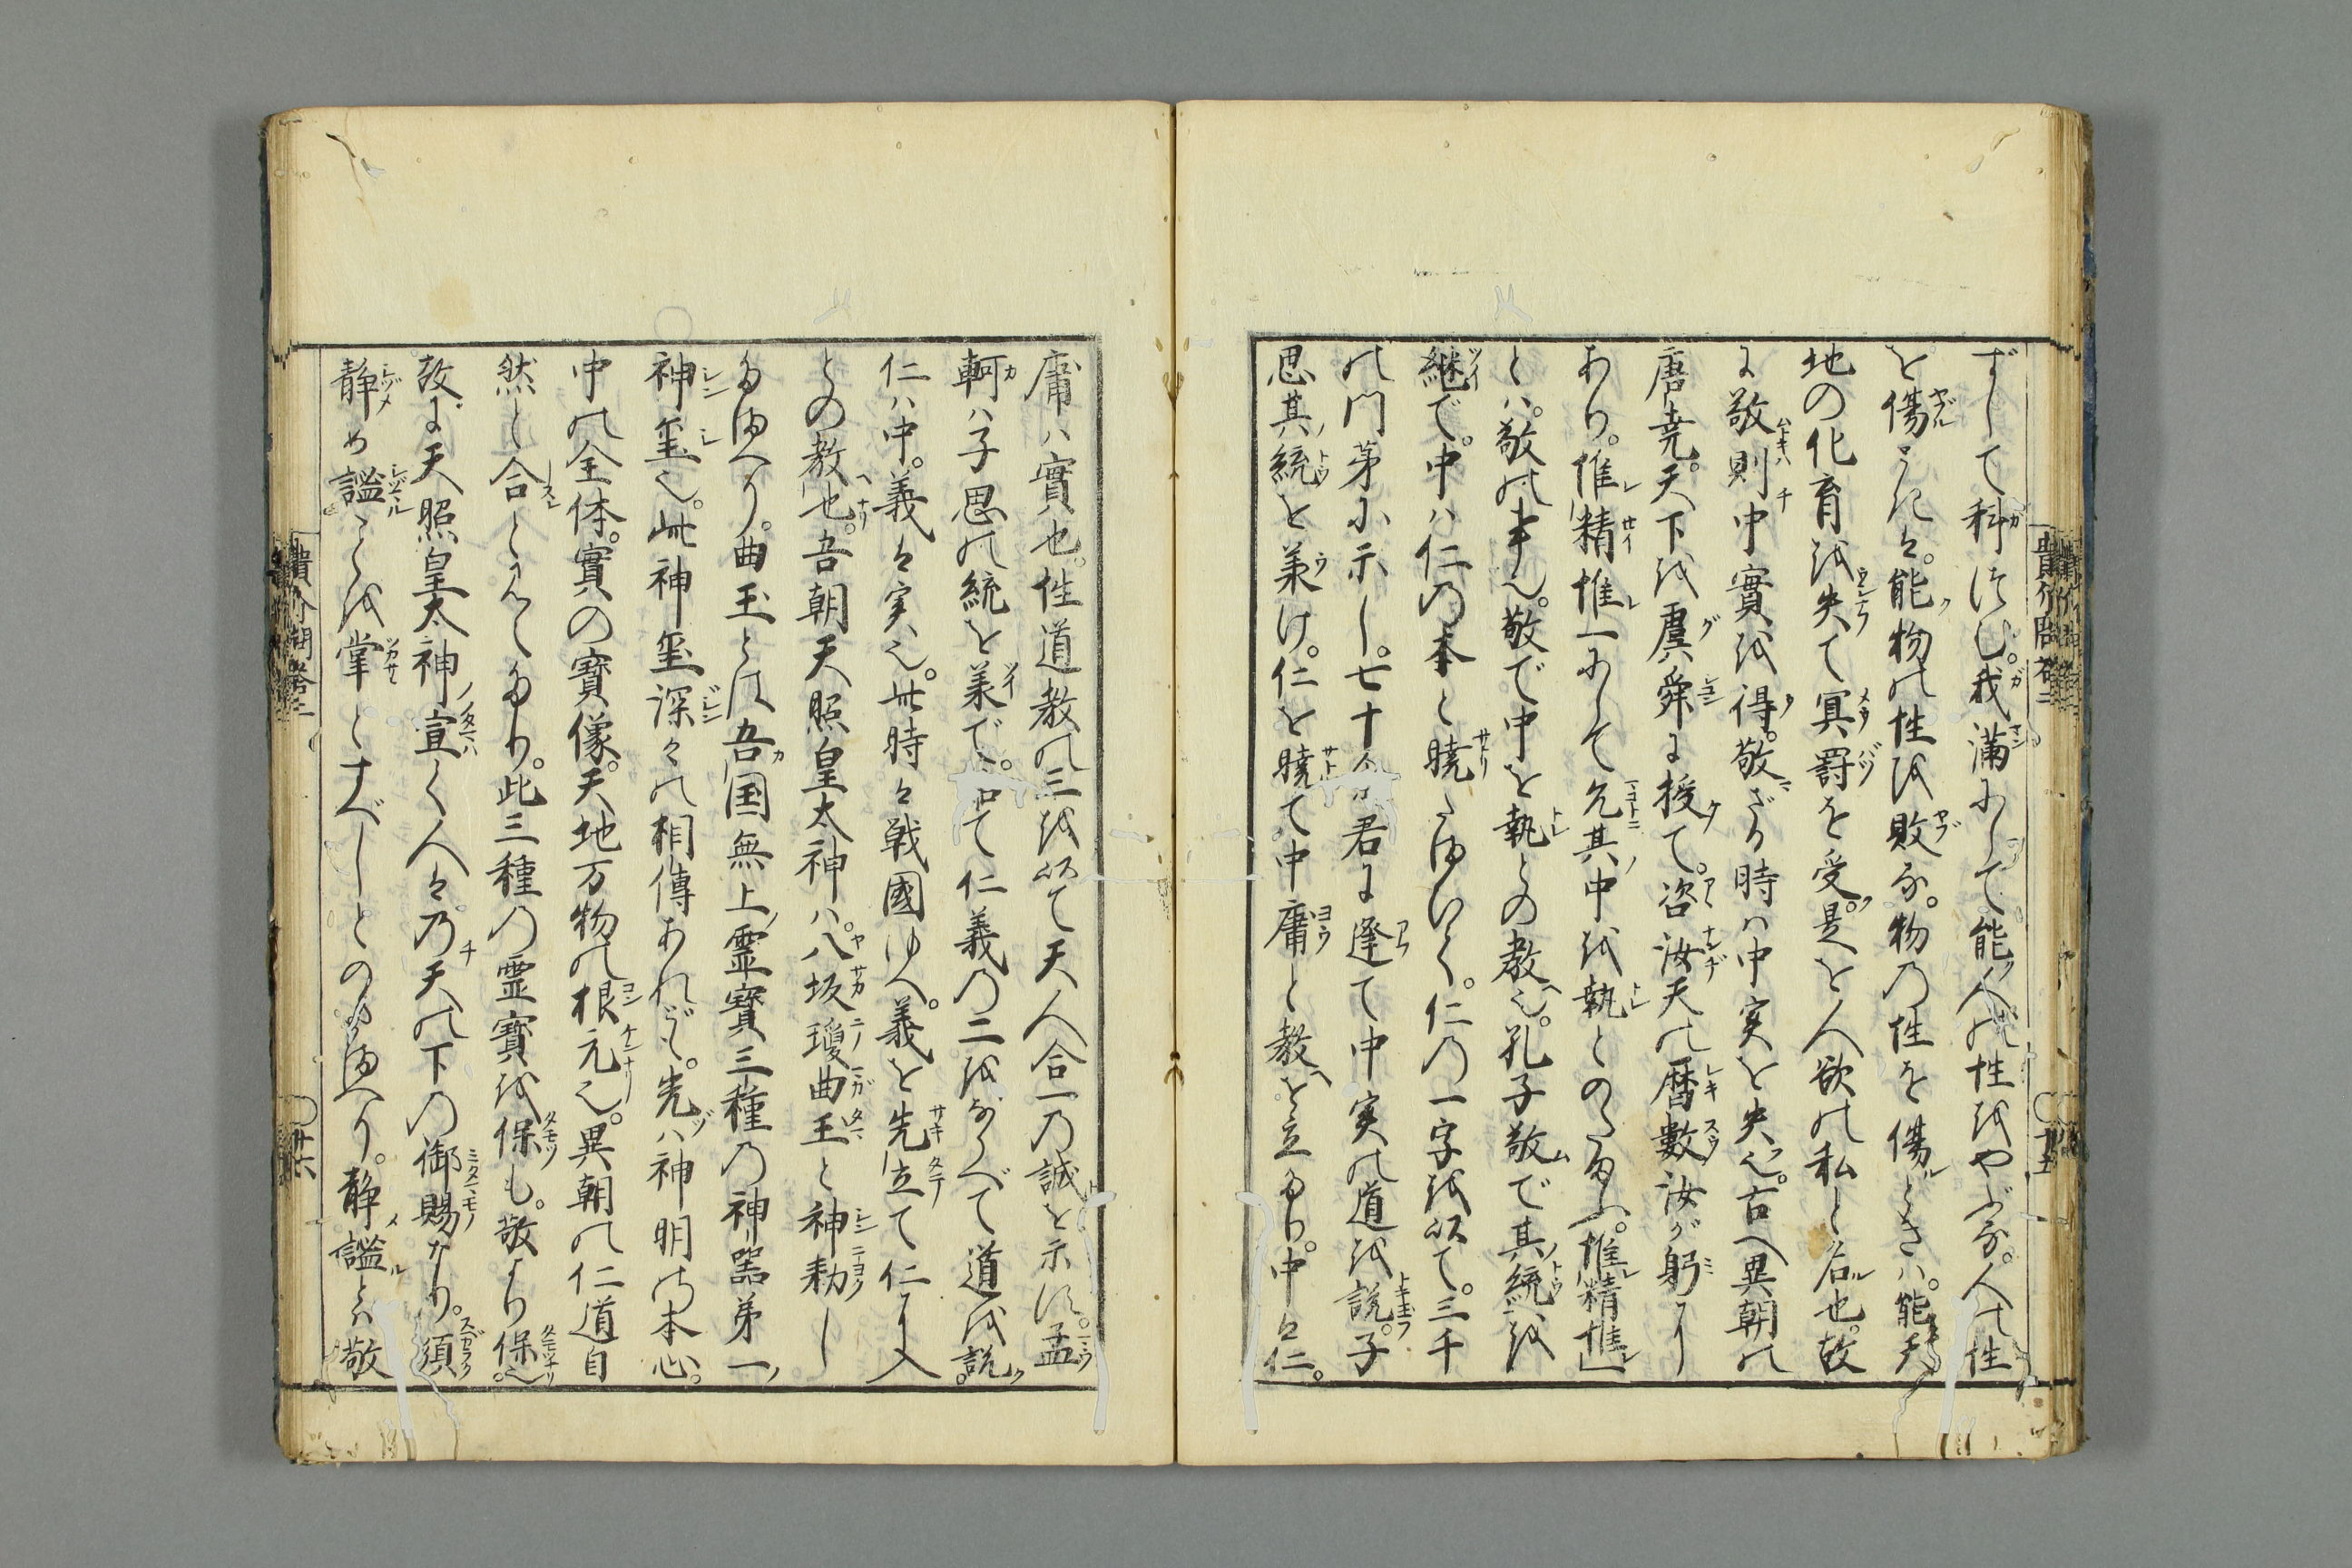 ずして科はじ。我滿にして能人の性をやぶる。人の性
を傷ときは。能物の性を敗る。物の性を傷ときハ。能天
地の化育を失て冥罰を受。是を人欲の私と名也。故
に敬則中實を得。敬ざる時ハ中実を失也。古へ異朝の
唐堯。天下を虞舜に授て。咨汝天の暦數汝が躬に
あり。惟精惟一にして允其中を執とのたまふ。惟精惟一
とハ。敬の事也。敬で中を執との教也。孔子敬で其統を
継で。中ハ仁の本と曉たまひて。仁の一字を以て。三千
の門弟に示し。七十余君に逢て中実の道を説。子
思其統を兼け。仁を曉て中庸と教を立たり。中は仁。
庸ハ實也。性道教の三を以て天人合一の誠を示す。孟
軻ハ子思の統を兼で。て仁義の二をならべて道を説。
仁ハ中。義は実也。此時は戦國ゆへ。義を先立て仁に入
との教也。吾朝天照皇太神ハ。八坂瓊曲玉と神勅し
たまへり。曲玉とは吾国無上霊寳三種の神器第一
神璽也。此神璽深々の相傳あれども。先ハ神明の本心。
中の全体。實の寳像。天地万物の根元也。異朝の仁道自
然と合たり。此三種の霊寳を保も。敬より保也。
故に天照皇太神宣く人は乃天の下の御賜なり。須
静め謐ことを掌とすべしとのたまへり。静謐とハ敬